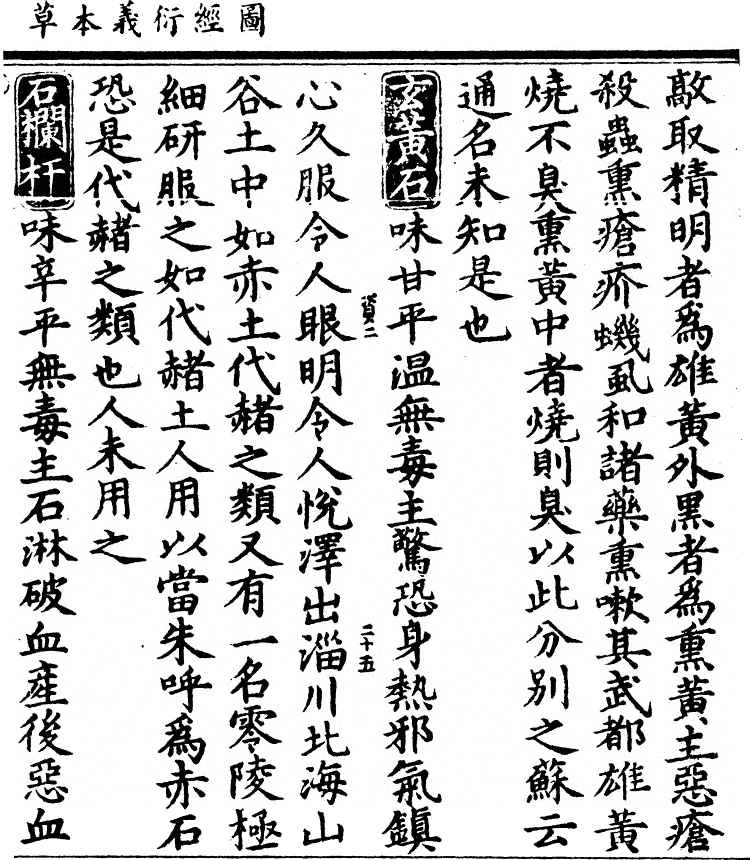 圖經衍義本草
敲取精明者爲雄黃外黒者爲熏黃主惡瘡
殺蟲熏瘡疥蟣虱和諸藥熏嗽其武都雄黃
燒不臭熏黃中者燒則臭以此分別之蘇云
通名未知是也
玄黃石味甘平温無毒主驚恐身熱邪氣鎮
心久服令人眼明令人悅澤出淄川北海山
資二
二十五
谷土中如赤土代赭之類又有一名零陵極
細研服之如代赭土人用以當朱呼爲赤石
恐是代赭之類也人未用之
石欄杆味辛平無毒主石淋破血産後惡血